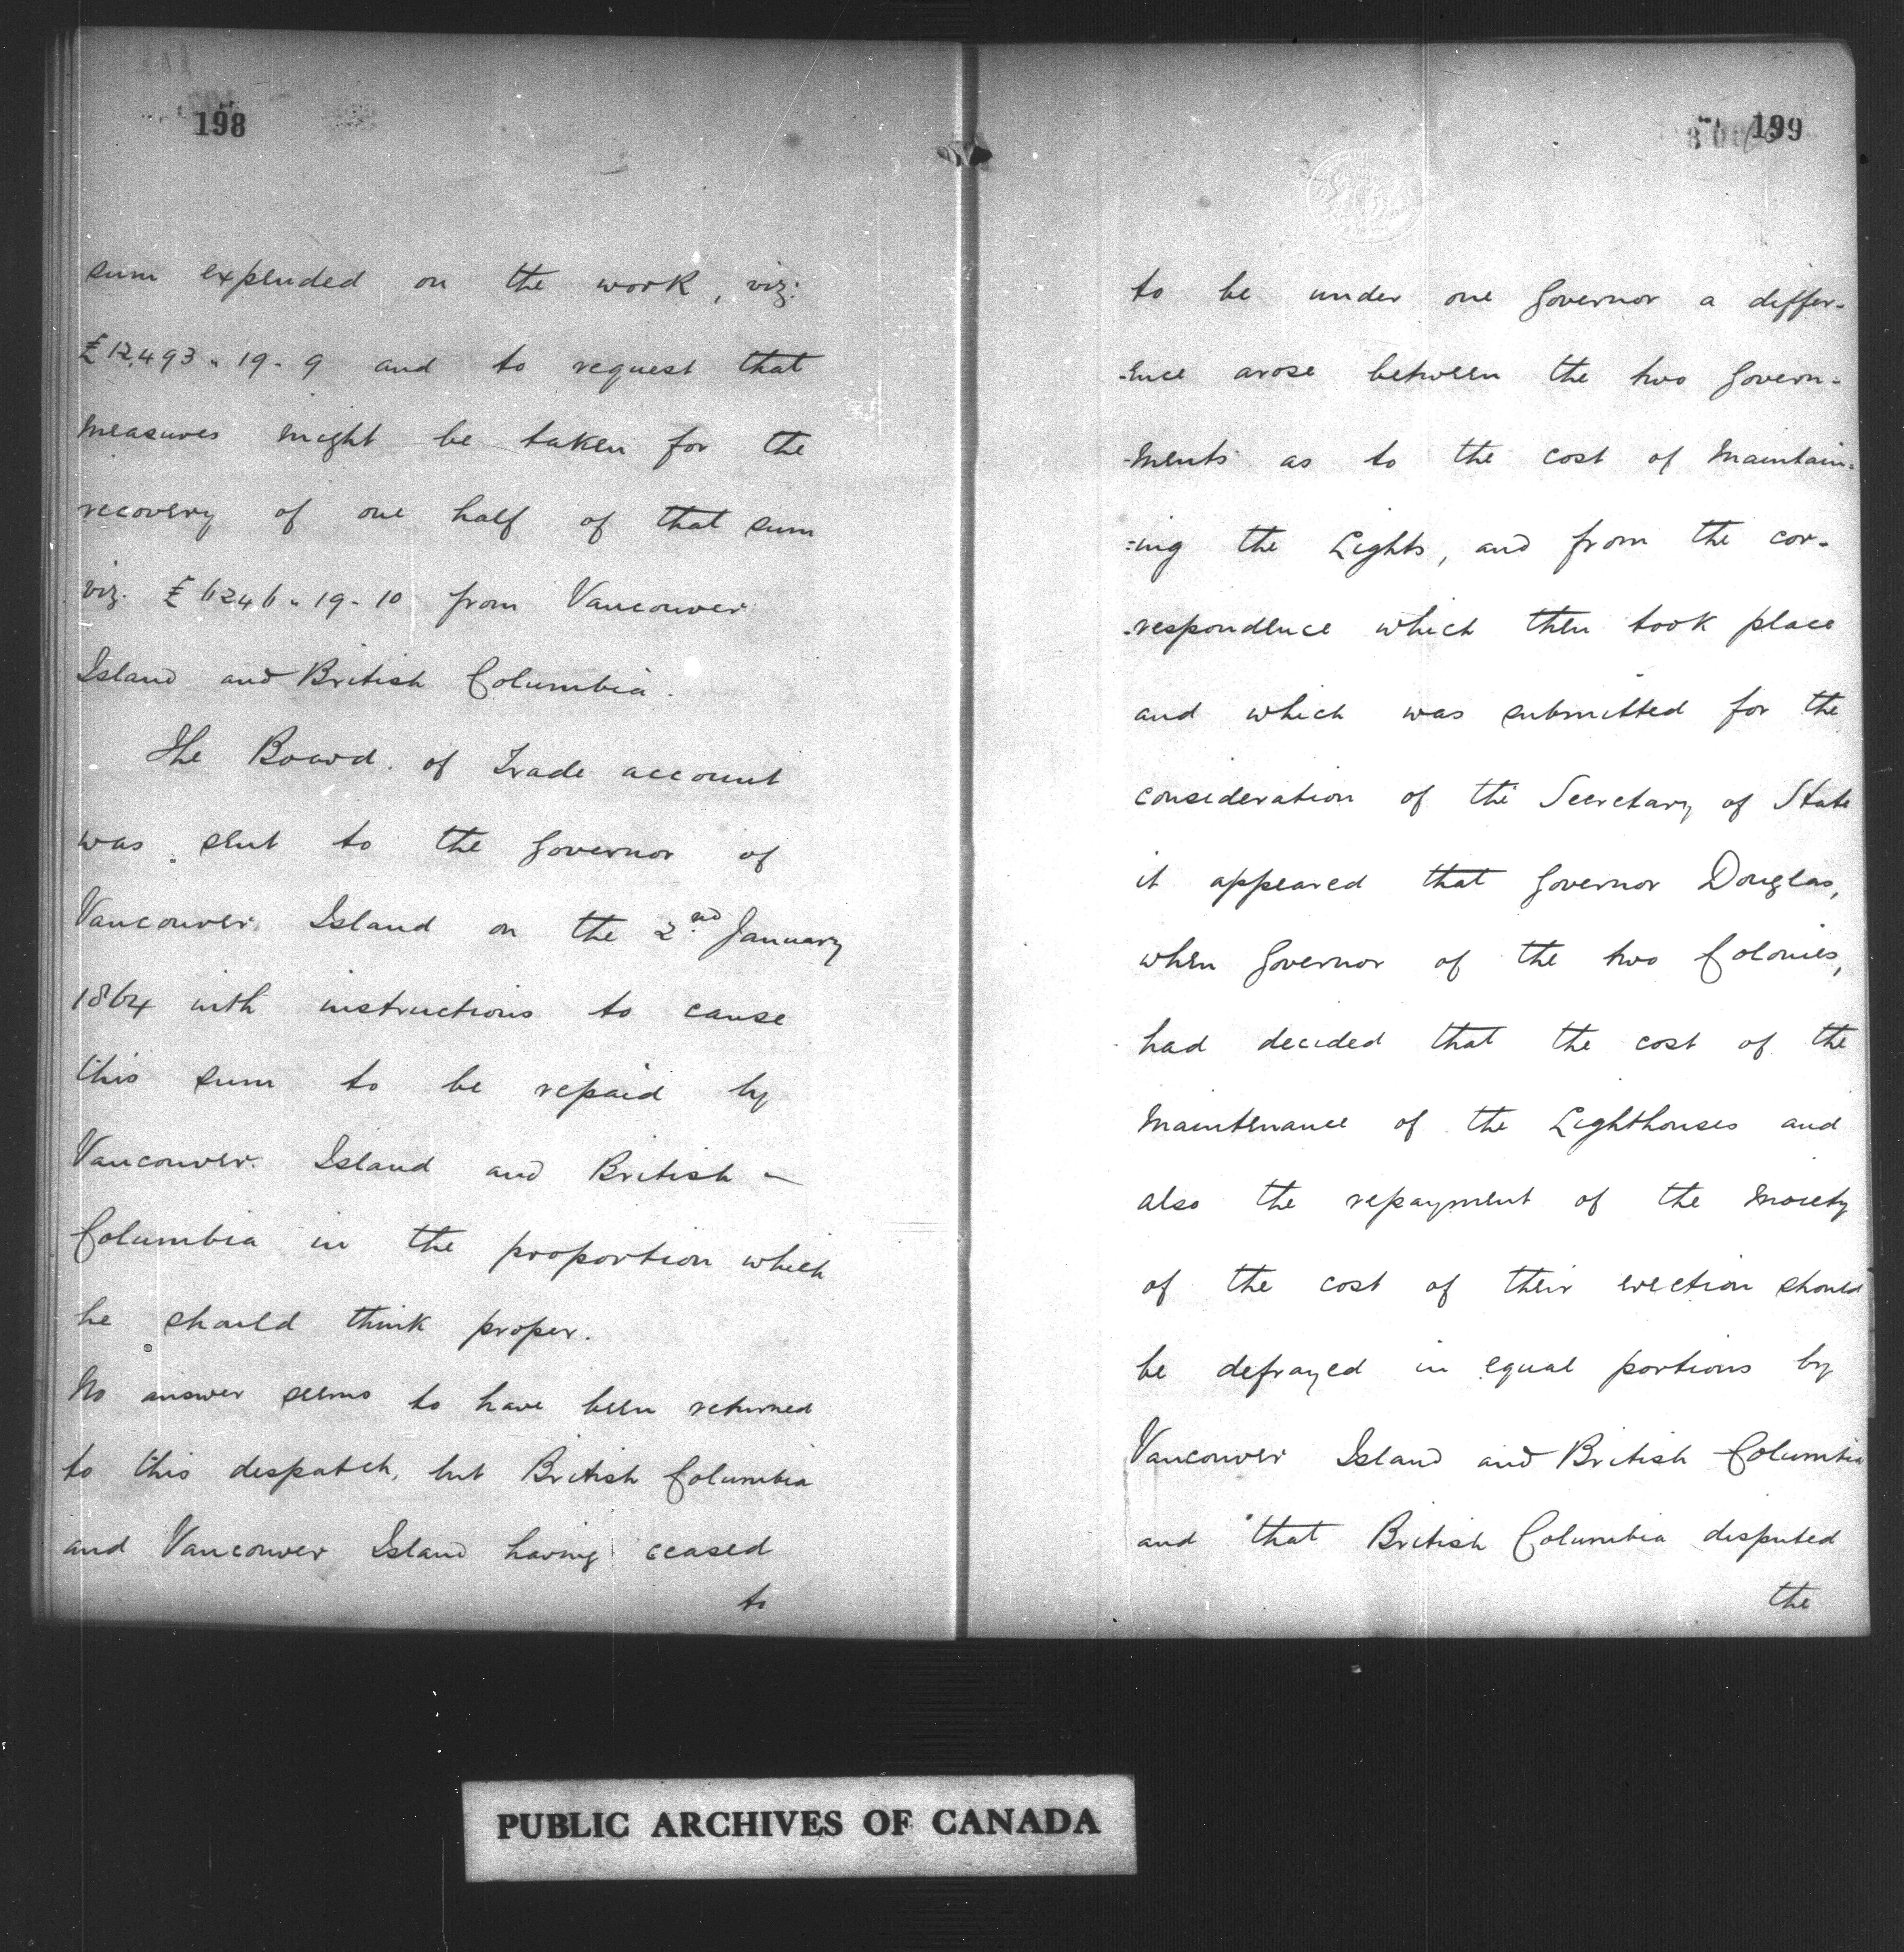 198
sum expended on the work, viz:
£12,493 " 19 - 9 and to request that
measures might be taken for the
recovery of one half of that sum
viz. £6246 " 19 - 10 from Vancouver
Island and British Columbia.
The Board of Trade account
was sent to the Governor of
Vancouver Island on the 2nd January
1864 with instructions to cause
this sum to be repaid by
Vancouver Island and British -
Columbia in the proportion which
he should think proper.
No answer seems to have been returned
to this despatch, but British Columbia
and Vancouver Island having ceased
to
199
to be under one Governor a differ-
-ence arose between the two Govern-
-ments as to the cost of maintain=
=ing the Lights, and from the cor-
-respondence which then took place
and which was submitted for the
consideration of the Secretary of State
it appeared that Governor Douglas,
when Governor of the two Colonies,
had decided that the cost of the
maintenance of the Lighthouses and
also the repayment of the moiety
of the cost of their erection should
be defrayed in equal portions by
Vancouver Island and British Columbia
and that British Columbia disputed
the
PUBLIC ARCHIVES OF CANADA